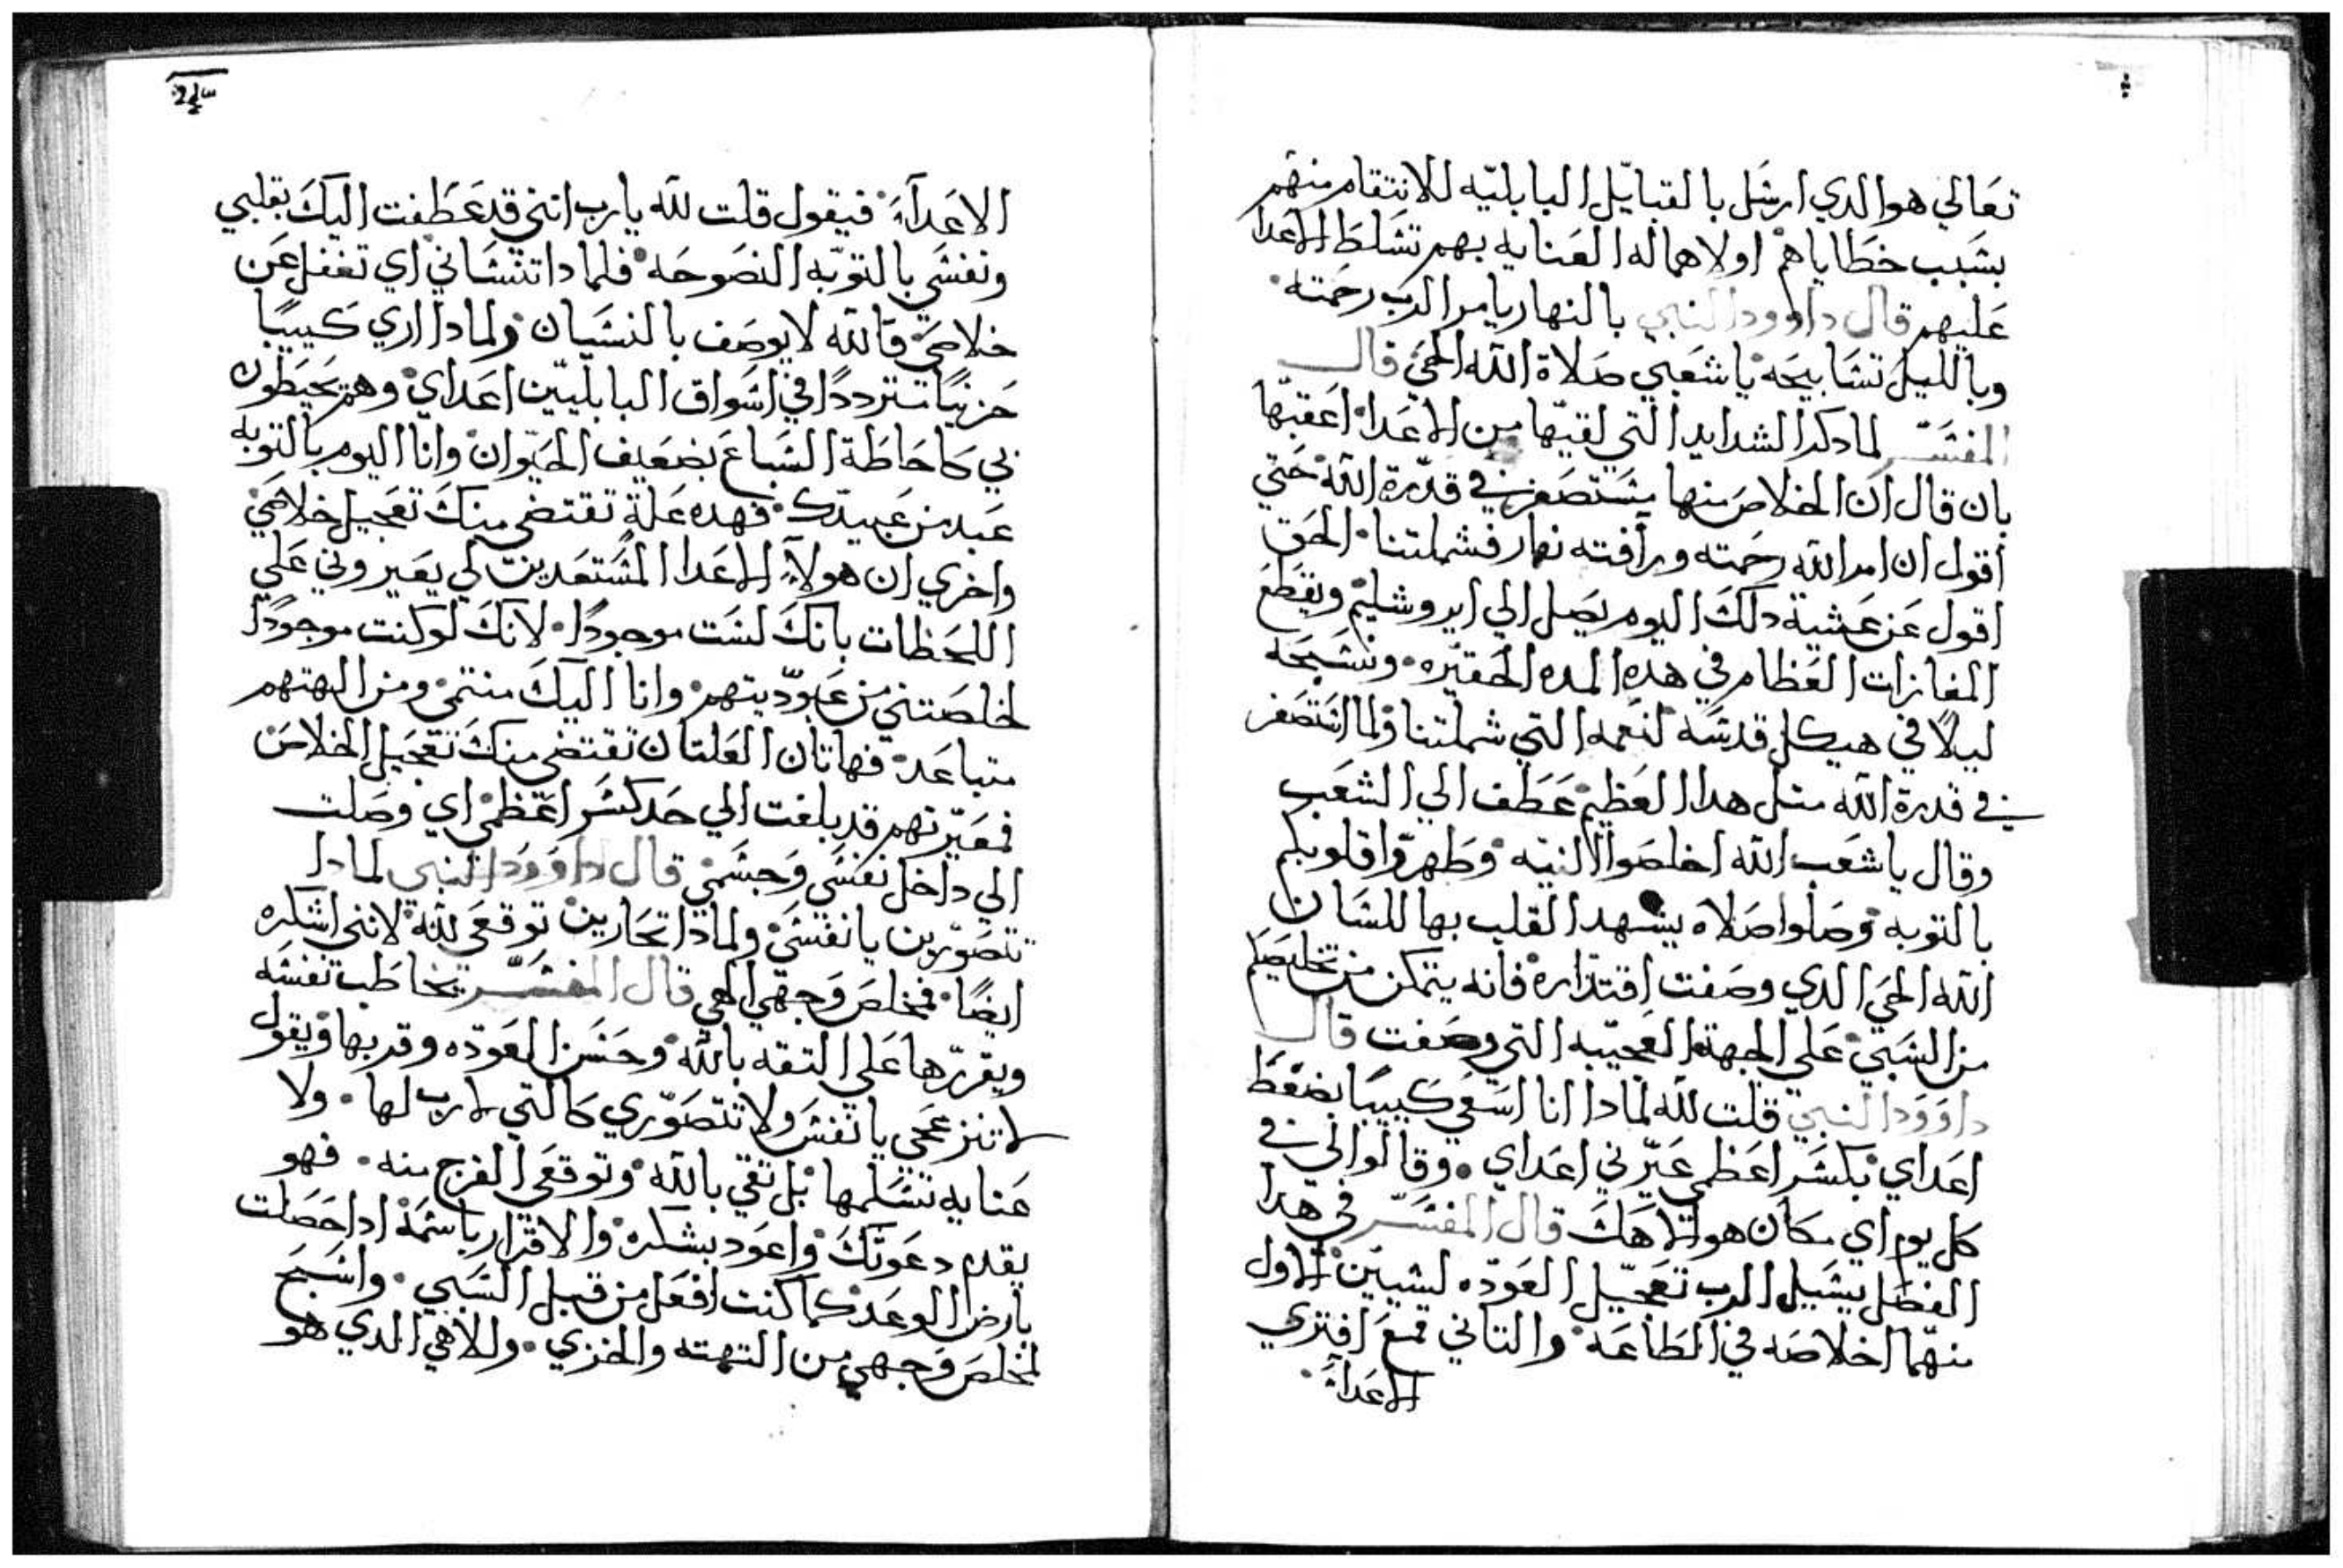 تعالي هو الدي ارسل بالقبايل البابليه للانتقام منهم
بسبب خطاياهم اولاهماله العنايه بهم تسلط الاعدا
عليهم قال داوود النبي بالنهار يامر الرب رحمته
وبالليل تسابيحه ياشعبي صلاة الله الحي قال
المفسر لما دكر الشدايد التي لقيها من الاعدا اعقبها
بان قال ان الخلاص منها يستصغر في قدرة الله حتي
اقول ان امر الله رحمته ورأفته نهار فشملتنا الحق
اقول عن عشية دلك اليوم يصل الي ايروشليم ويقطع
المفازات العظام في هده المده الحقيره ونسبحه
ليلاً في هيكل قدسه لنعمه التي شملتنا ولما استصغر
في قدرة الله متل هدا العظيم عطف الي الشعب
وقال ياشعب الله اخلصوا النيه وطهروا قلوبكم
بالتوبه وصلوا صلاه يشهد القلب بها للسان
الله الحي الدي وصفت اقتداره فانه يتمكن من تخليصكم
من السبي علي الجهة العجيبه التي وصفت قال
داوود النبي قلت لله لمادا انا اسعي كييبا بضغط
اعداي بكسر اعظمي عيرني اعداي وقالوا لي في
كل يوم اي مكان هو الاهك قال المفسر في هدا
الفصل يسيل الرب تعجيل العوده لسببين الاول
منهما اخلاصه في الطاعه والتاني قمع افتري
الاعداً
الاعدآء فيقول قلت لله يارب انني قد عطفت اليك بقلبي
ونفسي بالتوبه النصوحه فلمادا تنساني اي تغفل عن
خلاصي فالله لا يوصف بالنسيان ولمادا اري كييبًا
حزينًا مترددًا في اسواق البابليين اعداي وهم يحيطون
بي كاحاطة السباع بضعيف الحيوان وانا اليوم بالتوبه
عبد من عبيدك فهده علة تقتضي منك تعجيل خلاصي
واخري ان هولآء الاعدا المستعدين لي يعيروني علي
اللحظات بانك لست موجودًا لانك لو كنت موجودًا
لخلصتني من عبوديتهم وانا اليك منتمي ومن الهتهم
متباعد فهاتان العلتان تقتضي منك تعجيل الخلاص
فمعيرتهم قد بلغت الي حد كسر اعظمي اي وصلت
الي داخل نفسي وجسمي قال داوود النبي لمادا
تتصورين يانفسي ولمادا تحارين توقعي لله لانني اشكره
ايضًا فمخلص وجهي الهي قال المفسر يخاطب نفسه
ويقررها علي التقه بالله وحسن العوده وقربها ويقول
لا تنزعجي يانفس ولا تتصوري كالتي لا رب لها ولا
عنايه تشملها بل تقي بالله وتوقعي الفرج منه فهو
يقدم دعوتك واعود بشكره والاقرار باسمه ادا حصلت
بارض الوعد كما كنت افعل من قبل السبي واسبح
لمخلص وجهي من التهته والخزي والاهي الدي هو